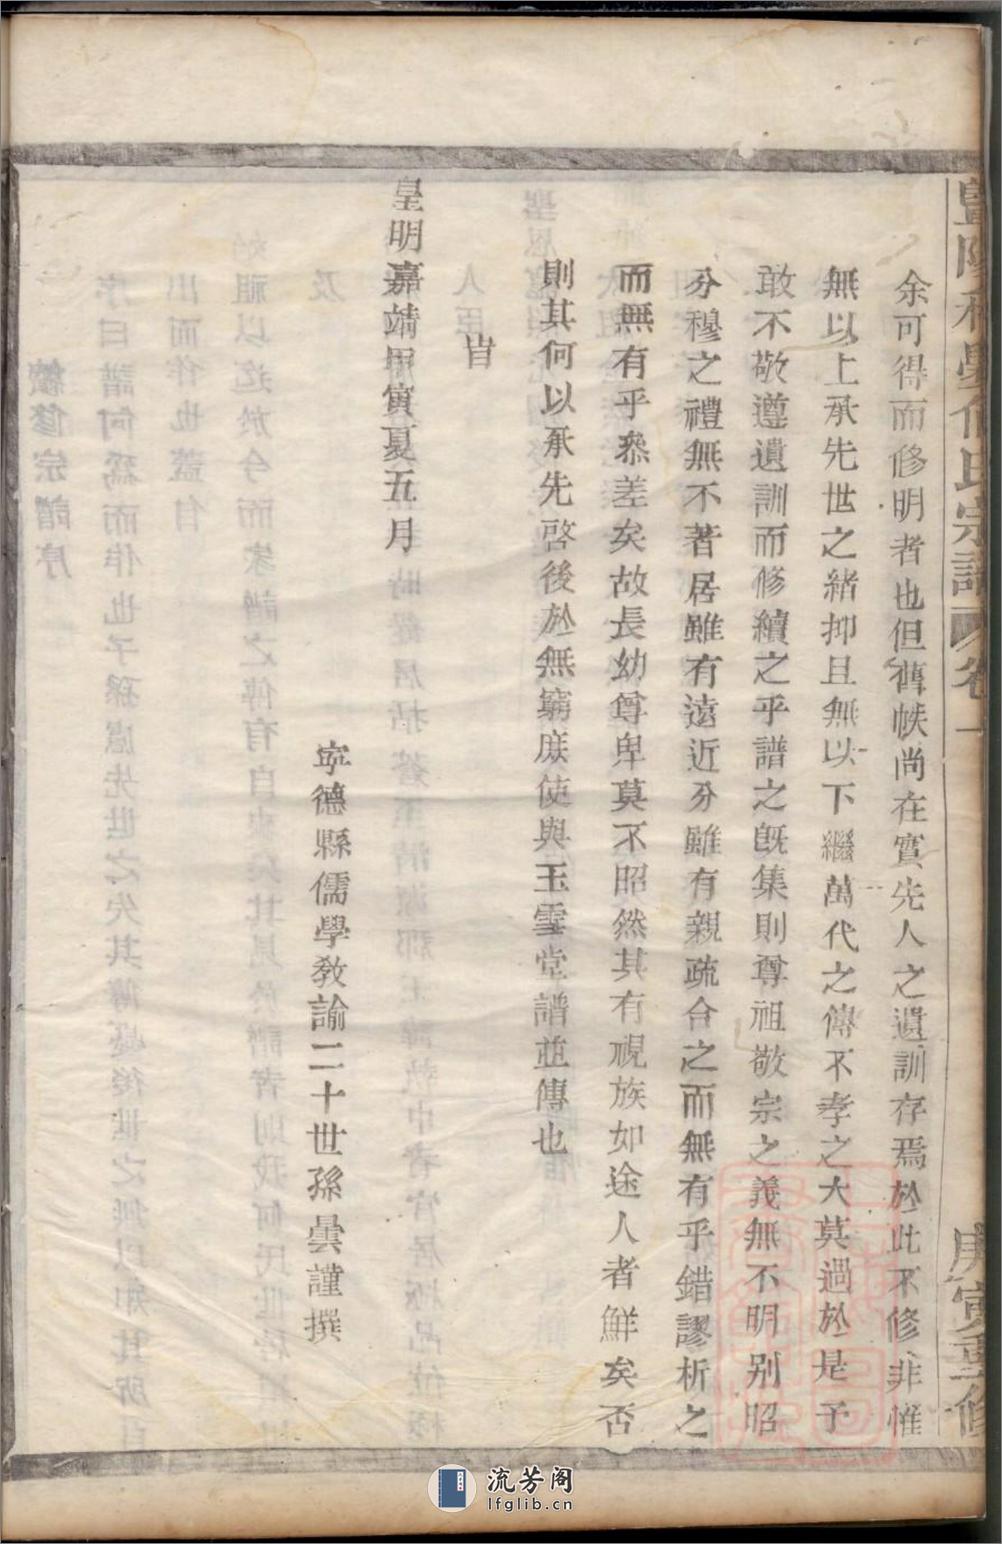 暨陽孝感何氏宗譜 卷一
庚寅重修
余可得而修明者也但舊帙尚在實先人之遺訓存焉於此不修非惟
無以上承先世之緒抑且無以下繼萬代之傳不孝之大莫過於是予
敢不敬遵遺訓而修續之乎譜之旣集則尊祖敬宗之義無不明别昭
分穆之禮無不著居雖有遠近分雖有親疏合之而無有乎錯謬析之
而無有乎叅差矣故長幼尊卑莫不昭然其有視族如途人者鮮矣否
則其何以承先啓後於無窮庶使與玉雪堂譜並傳也
旹
皇明嘉靖甲寅夏五月
寧德縣儒學教諭二十世孫曇謹撰
流芳阁
lfglib.cn